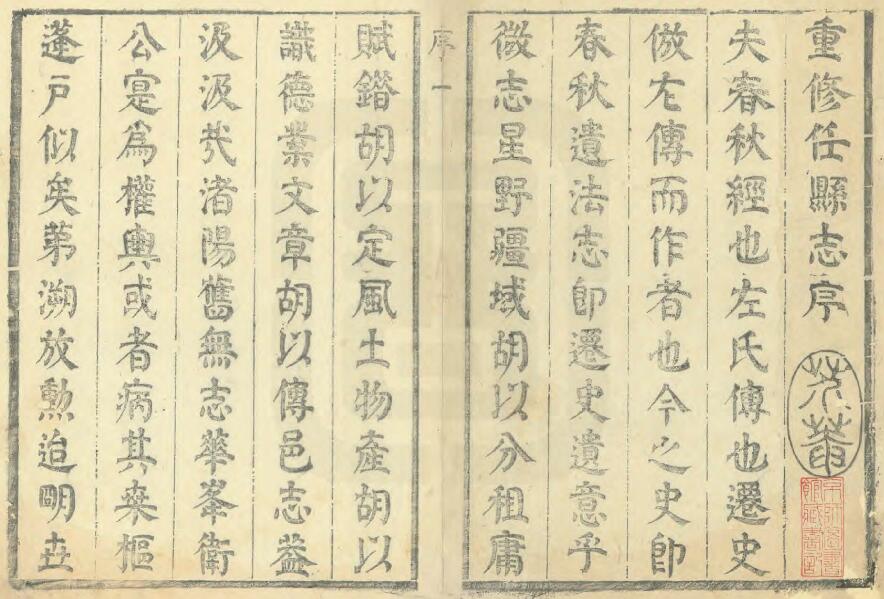 重修任縣志序
夫春秋經也左氏傳也遷史
倣左傳而作者也今之史即
春秋遺法志即遷史遺意乎
微志星野疆域胡以分租庸
序 一
賦鍇胡以定風土物產胡以
識德業文章胡以傳邑志葢
汲汲㢤渚陽舊無志華峯衛
公寔為權輿或者病其桒樞
蓬戶似矣苐溯放勲迨明㐀